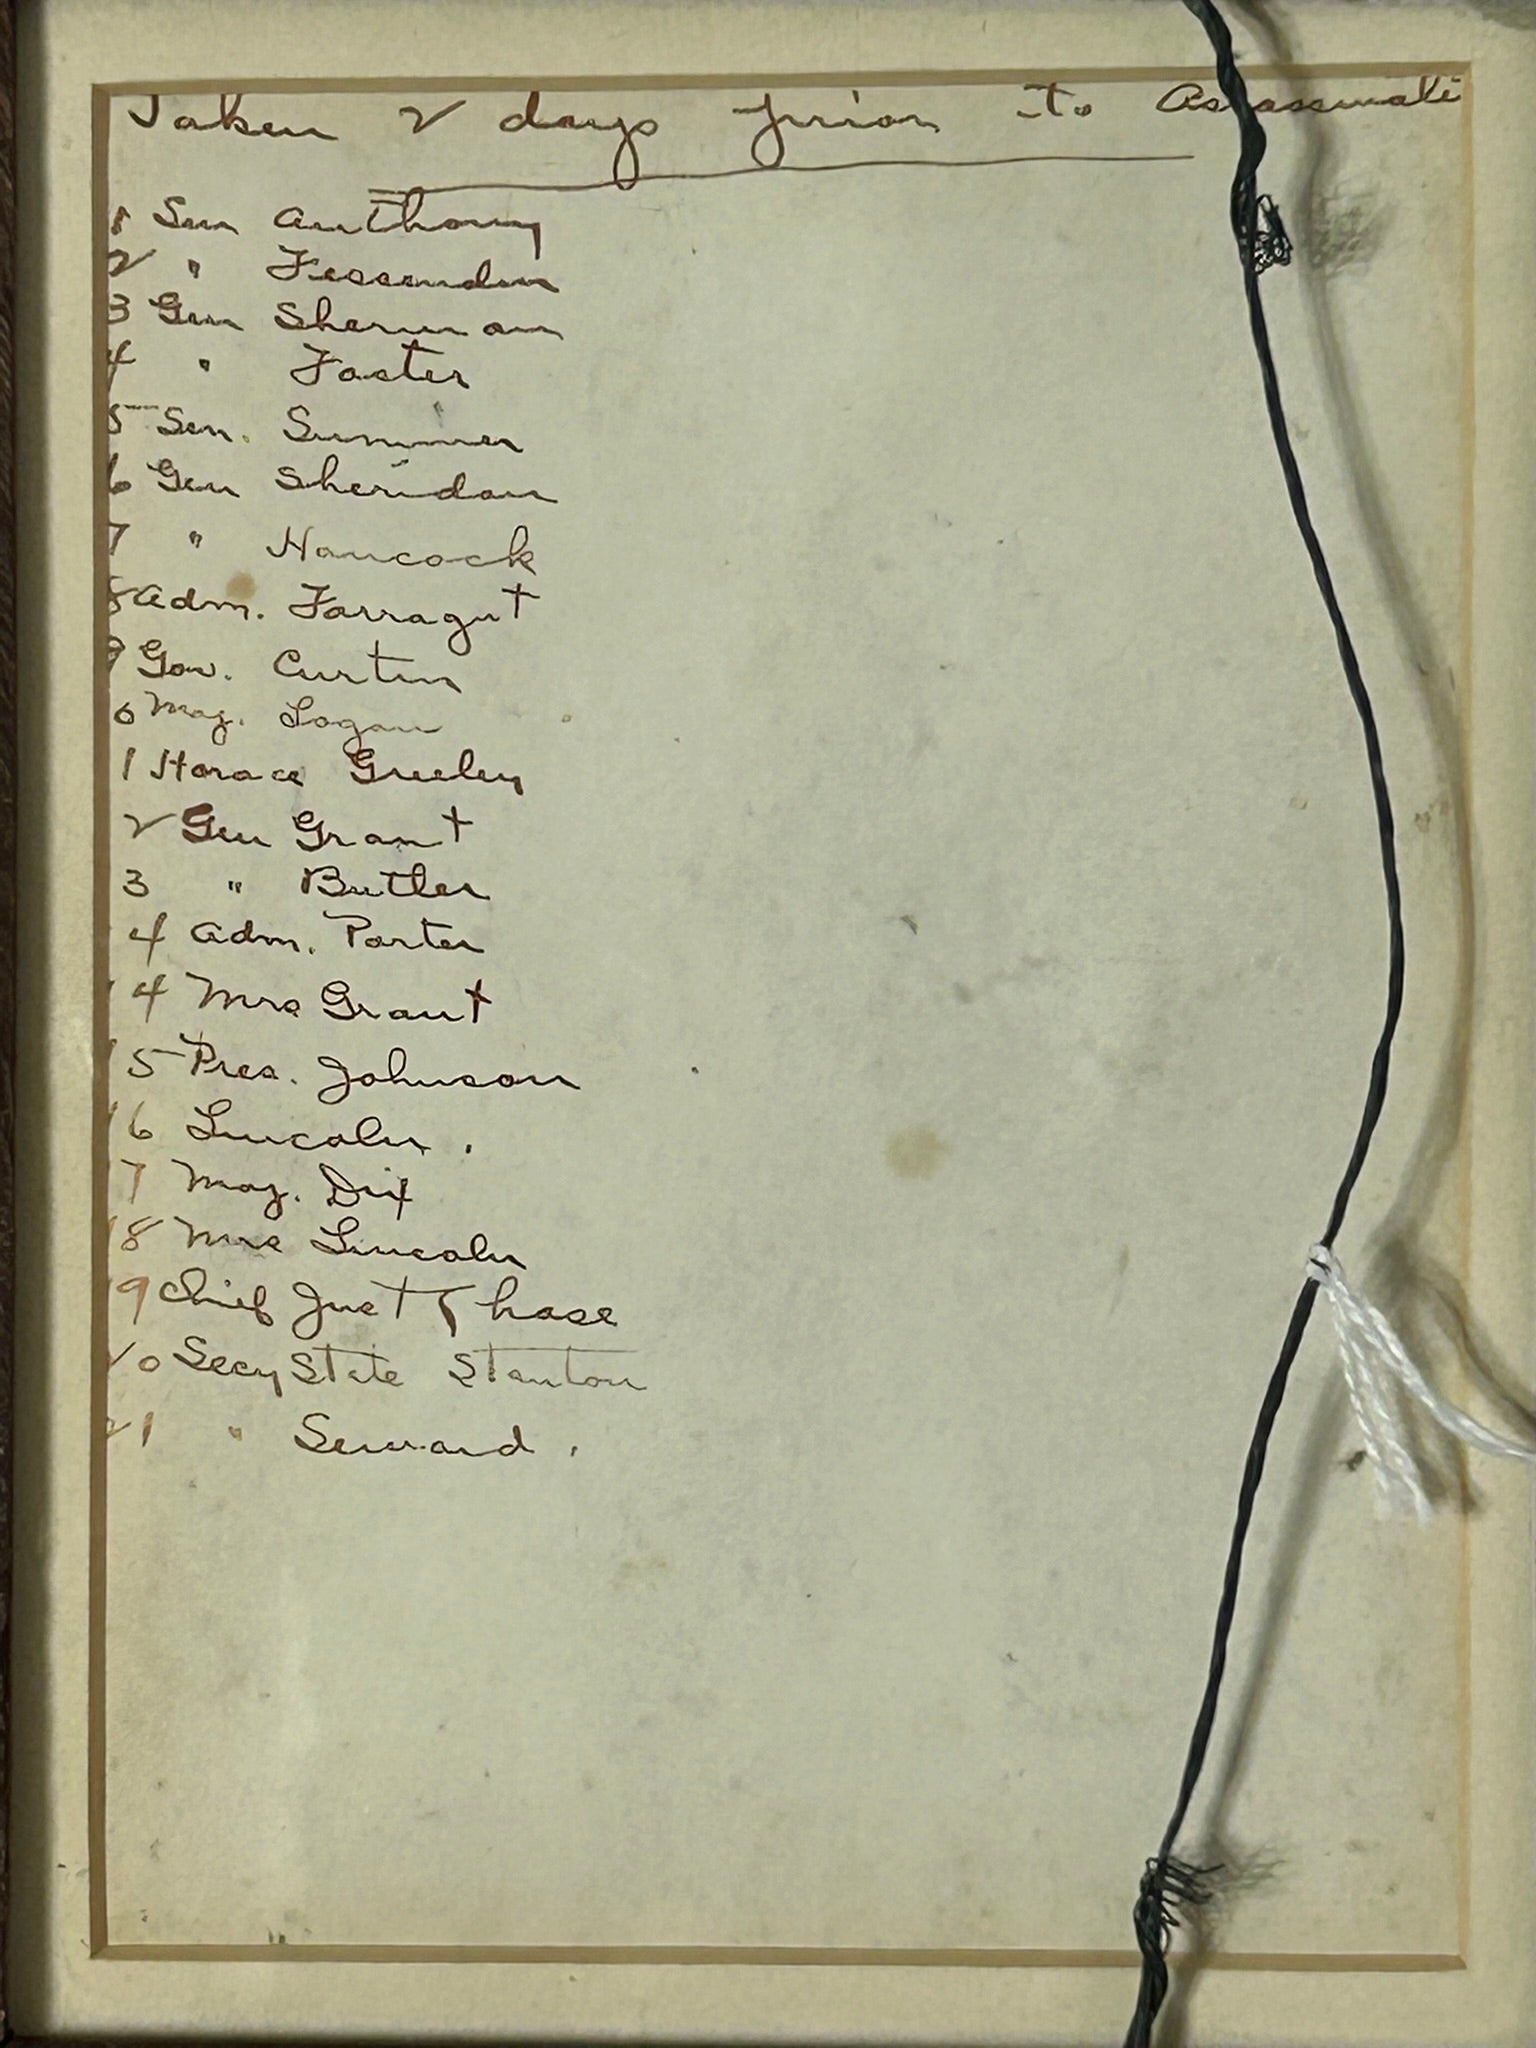 Taken 2 days prior to Assassinati
1 Sen Anthony
2 " Fessenden
3 Gen Sherman
4 " Foster
5 Sen. Sumner
6 Gen Sheridan
7 " Hancock
8 Adm. Farragut
9 Gov. Curtin
0 Maj. Logan
1 Horace Greeley
2 Gen Grant
3 " Butler
14 Adm. Porter
14 Mrs Grant
15 Pres. Johnson
16 Lincoln.
17 Maj. Dix
18 Mrs Lincoln
19 Chief Just Chase
20 Secy State Stanton
21 " Seward.